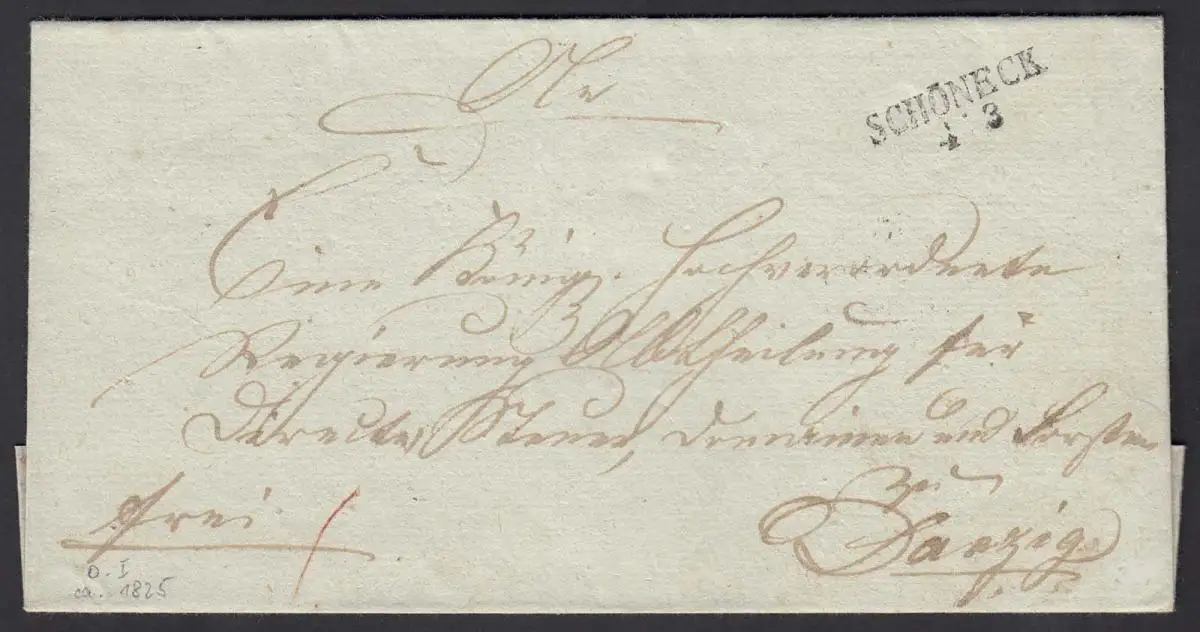 An
SCHÖNECK
4 3
Eine Königl. Hochverordnete
Regierung Abtheilung für
Directe Steuer, Domainen und Forsten
zu
Danzig
frei
O. I
ca. 1825